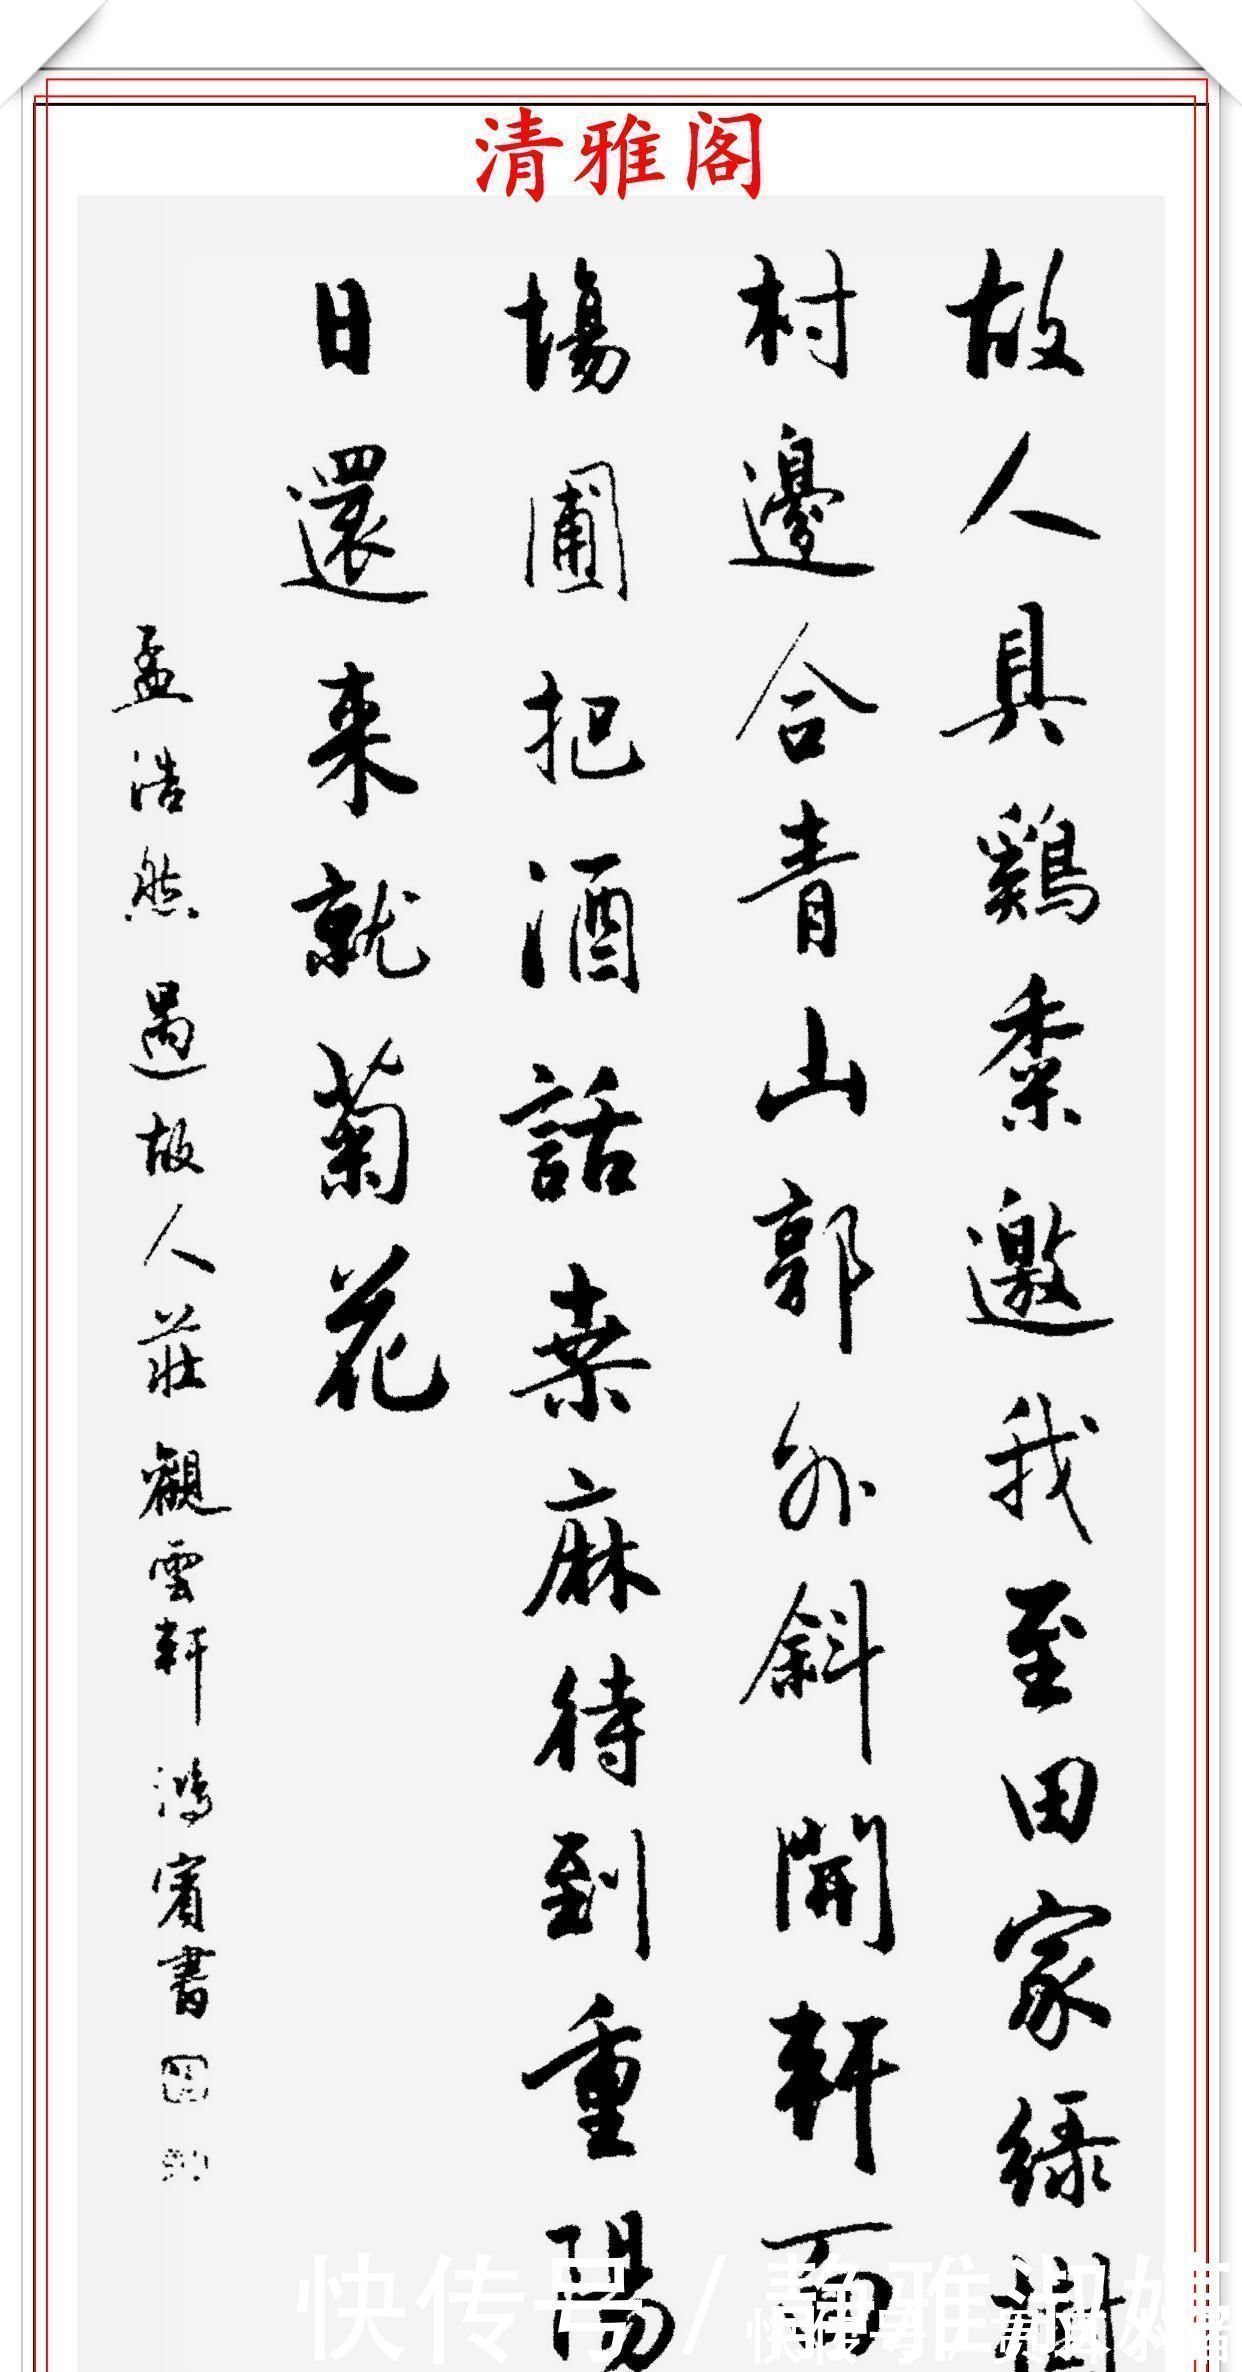 清雅阁
故人具鷄黍邀我至田家緑樹
村邊合青山郭外斜開軒面
場圃把酒話桒麻待到重陽
日還来就菊花
孟浩然過故人莊觀雲軒鴻賓書
快传号/静雅淑媛